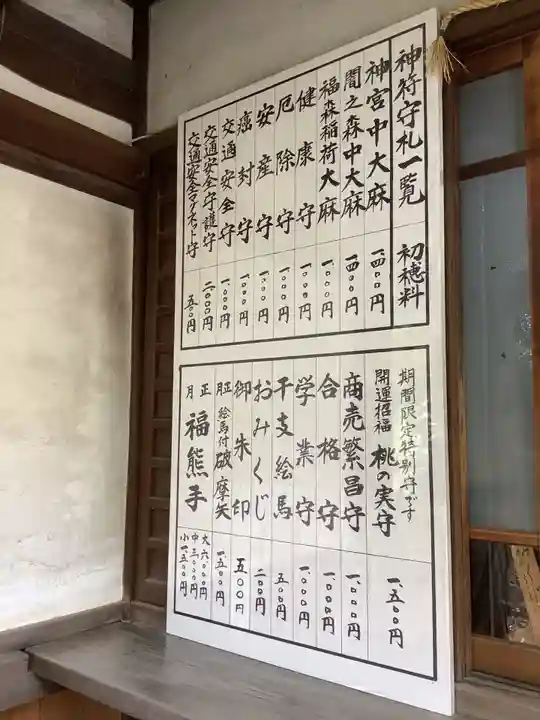 神符守札一覧 初穂料
神宮中大麻 一、四〇〇円
間之森中大麻 一、四〇〇円
福森稲荷大麻 一、〇〇〇円
健康守 一、〇〇〇円
厄除守 一、〇〇〇円
安産守 一、〇〇〇円
癌封守 一、〇〇〇円
交通安全守 一、〇〇〇円
交通安全守護守 二、〇〇〇円
交通安全マグネット守 五〇〇円
期間限定特別守です
開運招福 桃の実守 一、五〇〇円
商売繁昌守 一、〇〇〇円
合格守 一、〇〇〇円
学業守 一、〇〇〇円
干支絵馬 五〇〇円
おみくじ 二〇〇円
御朱印 五〇〇円
正月 絵馬付破摩矢 一、五〇〇円
正月 福熊手 大六、〇〇〇円
中三、〇〇〇円
小一、五〇〇円